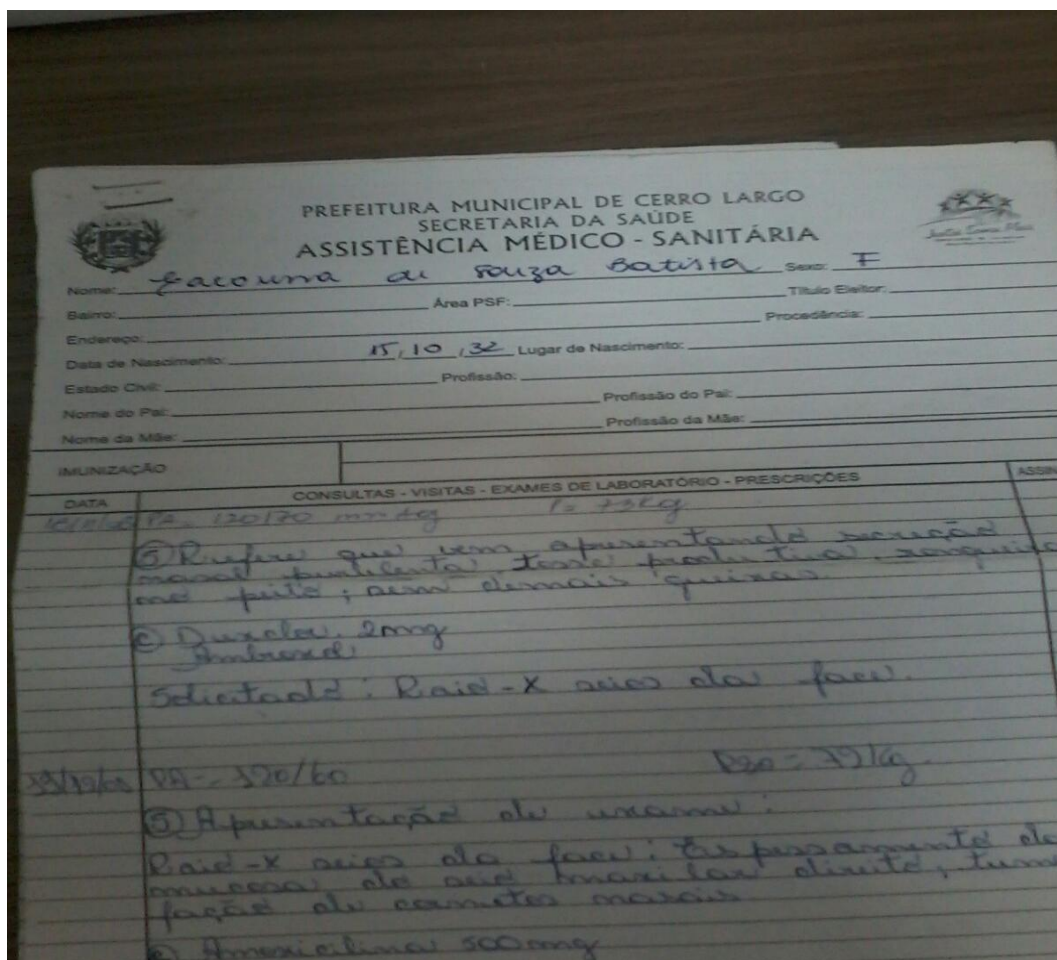 PREFEITURA MUNICIPAL DE CERRO LARGO
SECRETARIA DA SAÚDE
ASSISTÊNCIA MÉDICO - SANITÁRIA
Nome: de Souza Batista Sexo: F
Bairro: Área PSF: Título Eleitor:
Endereço: Procedência:
Data de Nascimento: 15,10,32 Lugar de Nascimento:
Estado Civil: Profissão:
Nome do Pai: Profissão do Pai:
Nome da Mãe: Profissão da Mãe:
IMUNIZAÇÃO
DATA CONSULTAS - VISITAS - EXAMES DE LABORATÓRIO - PRESCRIÇÕES ASSIN
PA. 120/70 mmHg P=
(S) Refere que vem apresentando secreção
nasal purulenta, tosse produtiva
no peito; sem demais queixas.
2mg
Ambroxol
Solicitado: Raio-X seios da face.
PA = 120/60 79 kg.
(S) Apresentação de exame:
Raio-X seios da face: Espessamento de
mucosa do seio maxilar direito, tume
fação de cornetos nasais
Amoxicilina 500mg